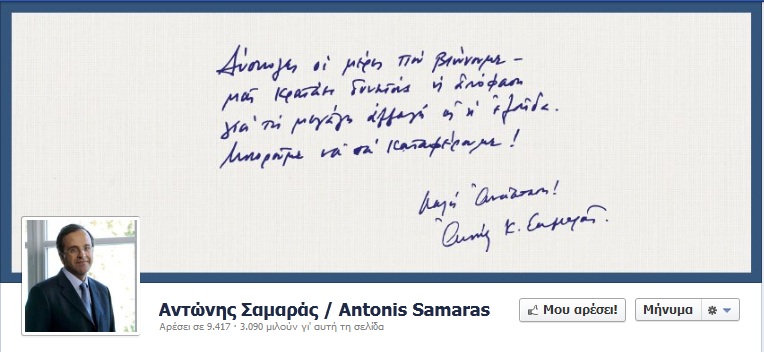 Δύσκολες οι μέρες που βιώνουμε –
μας κρατάει δυνατούς η απόφαση
για τη μεγάλη αλλαγή κι η ελπίδα.
Μπορούμε να τα καταφέρουμε!
Καλή Ανάσταση!
Αντώνης Κ. Σαμαράς.
Αντώνης Σαμαράς / Antonis Samaras
Αρέσει σε 9.417 · 3.090 μιλούν γι' αυτή τη σελίδα
Μου αρέσει!
Μήνυμα